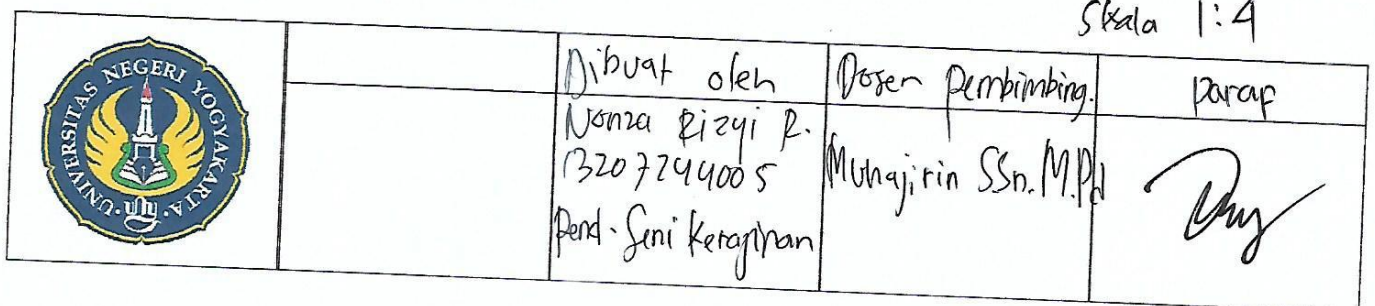 Skala 1:4
UNIVERSITAS NEGERI YOGYAKARTA
uny
Dibuat oleh
Dosen Pembimbing.
Paraf
Nonza Rizqi R.
13207244005
Pend. Seni Kerajinan
Muhajirin SSn. M.Pd